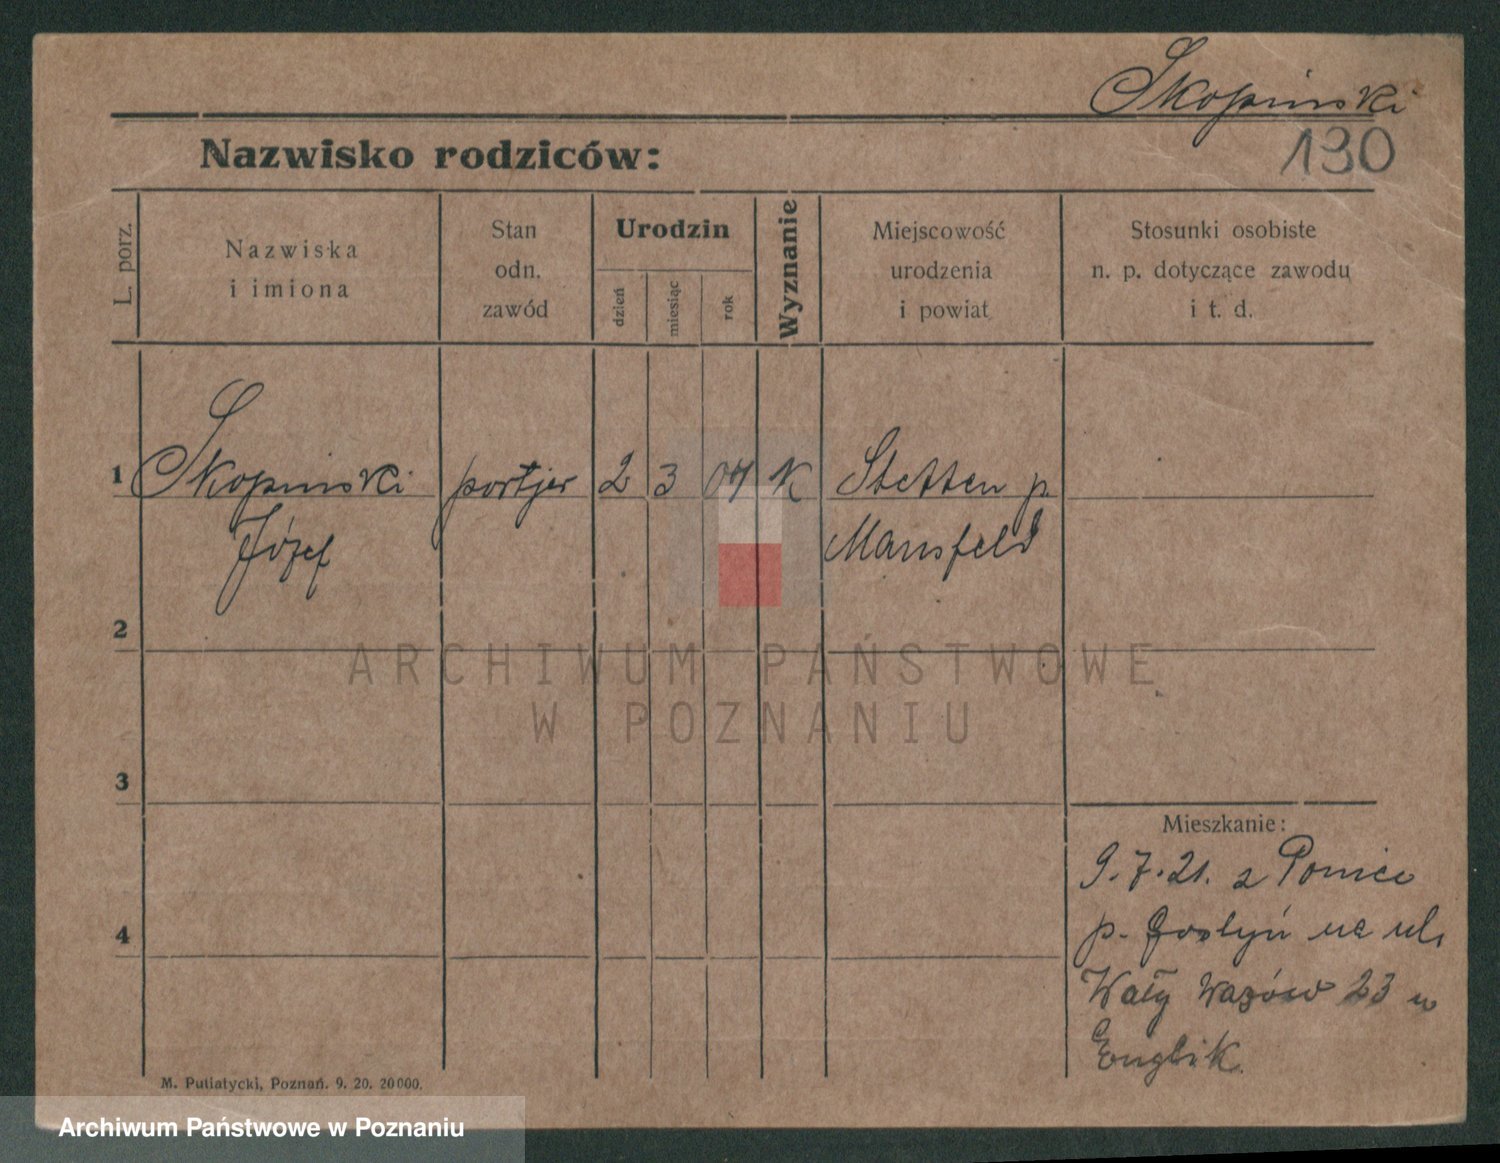 Skopinski
130
Nazwisko rodziców:
L. porz.
Nazwiska
i imiona
Stan
odn.
zawód
Urodzin
dzień
miesiąc
rok
Wyznanie
Miejscowość
urodzenia
i powiat
Stosunki osobiste
n. p. dotyczące zawodu
i t. d.
1 Skopinski portjer 2 3 04 K Stetten p.
Józef Mansfeld
2
ARCHIWUM PAŃSTWOWE
W POZNANIU
3
Mieszkanie:
9.7.21. z Ponice
p. Gostyń na ul.
4
Wały Wazów 23 u
M. Putiatycki, Poznań. 9. 20. 20000.
Archiwum Państwowe w Poznaniu